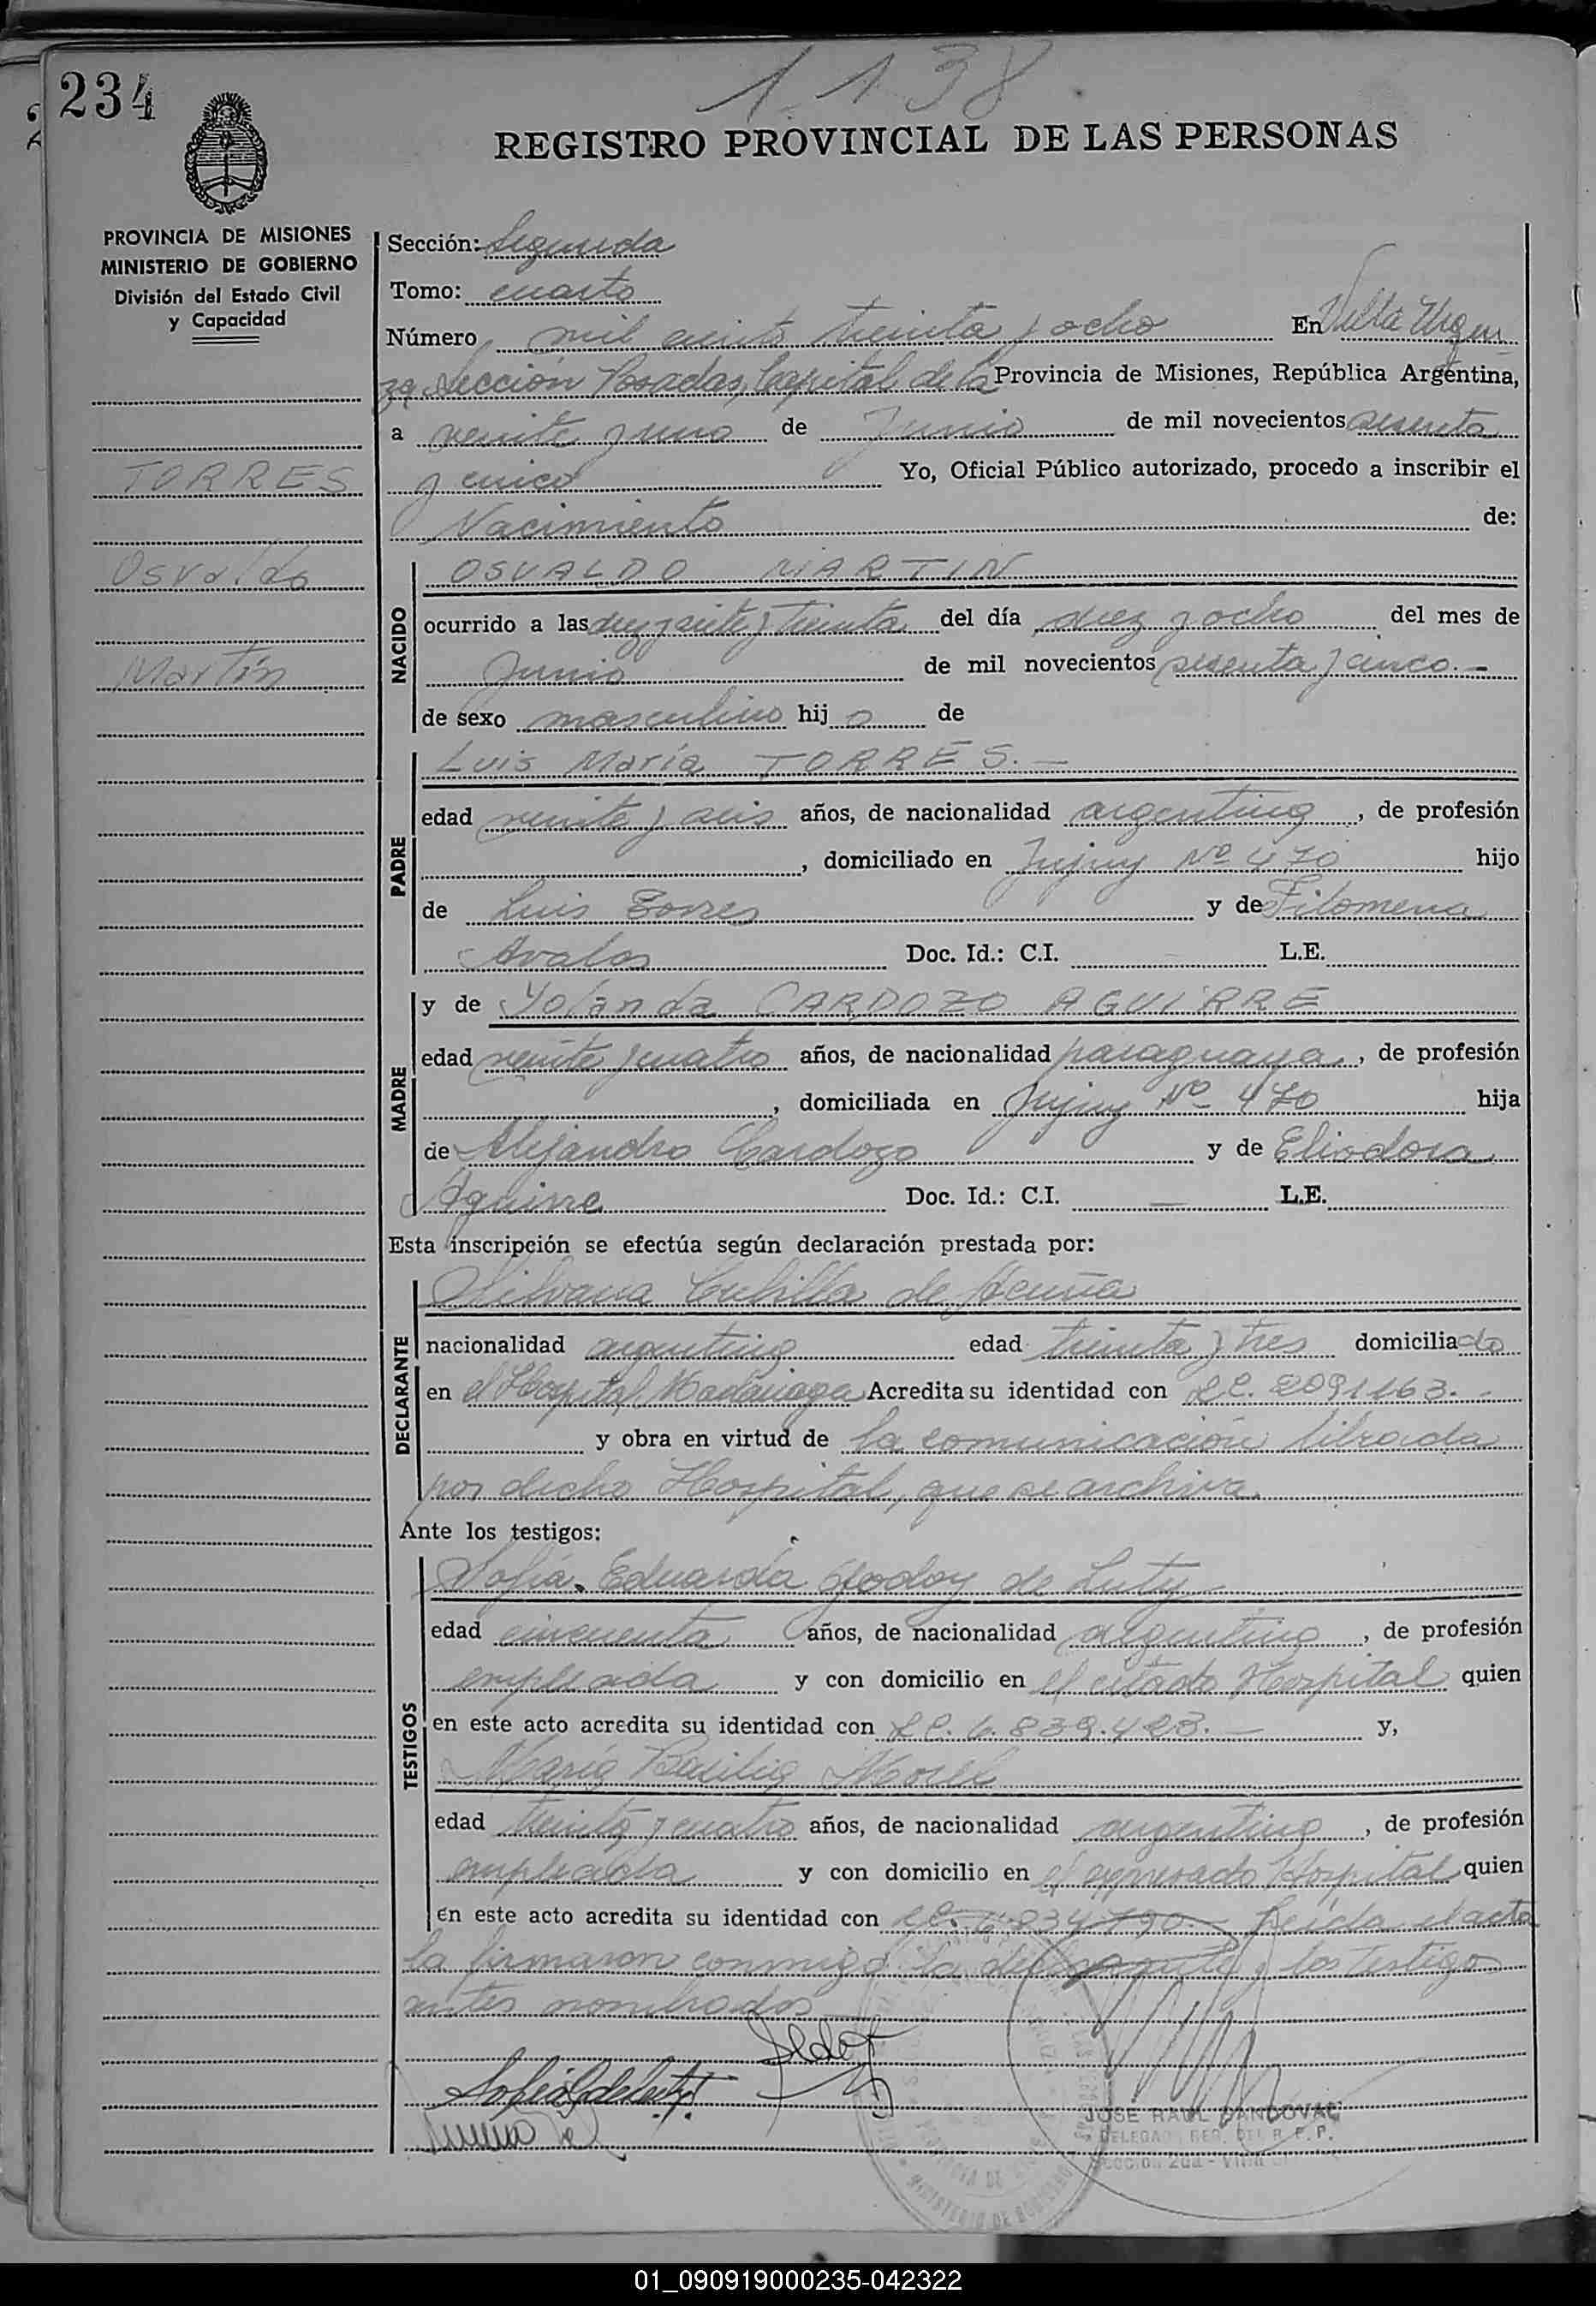 234
1138
REGISTRO PROVINCIAL DE LAS PERSONAS
PROVINCIA DE MISIONES
MINISTERIO DE GOBIERNO
División del Estado Civil
y Capacidad
TORRES
Osvaldo
Martín
Sección: Segunda
Tomo: cuarto
Número mil ciento treinta y ocho En Villa Urqui
za Sección Posadas, Capital de la Provincia de Misiones, República Argentina,
a veinte y uno de Junio de mil novecientos sesenta
y cinco Yo, Oficial Público autorizado, procedo a inscribir el
Nacimiento de:
NACIDO
OSVALDO MARTIN
ocurrido a las diez y siete y treinta del día diez y ocho del mes de
Junio de mil novecientos sesenta y cinco.-
de sexo masculino hij o de
PADRE
Luis María TORRES.-
edad veinte y seis años, de nacionalidad argentina, de profesión
, domiciliado en Jujuy Nº 470 hijo
de Luis Torres y de Filomena
Avalos Doc. Id.: C.I. L.E.
MADRE
y de Yolanda CARDOZO AGUIRRE
edad veinte y cuatro años, de nacionalidad paraguaya, de profesión
, domiciliada en Jujuy Nº 470 hija
de Alejandro Cardozo y de Eliodora
Aguirre Doc. Id.: C.I. — L.E.
Esta inscripción se efectúa según declaración prestada por:
DECLARANTE
Silvana Cubilla de Acuña
nacionalidad argentina edad treinta y tres domiciliado
en el Hospital Madariaga Acredita su identidad con L.C. 2091163.-
y obra en virtud de la comunicación librada
por dicho Hospital, que se archiva.
Ante los testigos:
TESTIGOS
Sofía Eduarda Godoy de Luty
edad cincuenta años, de nacionalidad argentina, de profesión
empleada y con domicilio en el citado Hospital quien
en este acto acredita su identidad con L.C. 6.839.423.- y,
María Basilia Morel
edad treinta y cuatro años, de nacionalidad argentina, de profesión
empleada y con domicilio en el expresado Hospital quien
en este acto acredita su identidad con L.C. 6.834.790.- Leída el acta
la firmaron conmigo la declarante y los testigos
antes nombrados
JOSE RAUL SANDOVAL
DELEGADO REG. DEL R. P. P.
Sección 2da - Villa
MINISTERIO DE GOBIERNO
01_090919000235-042322